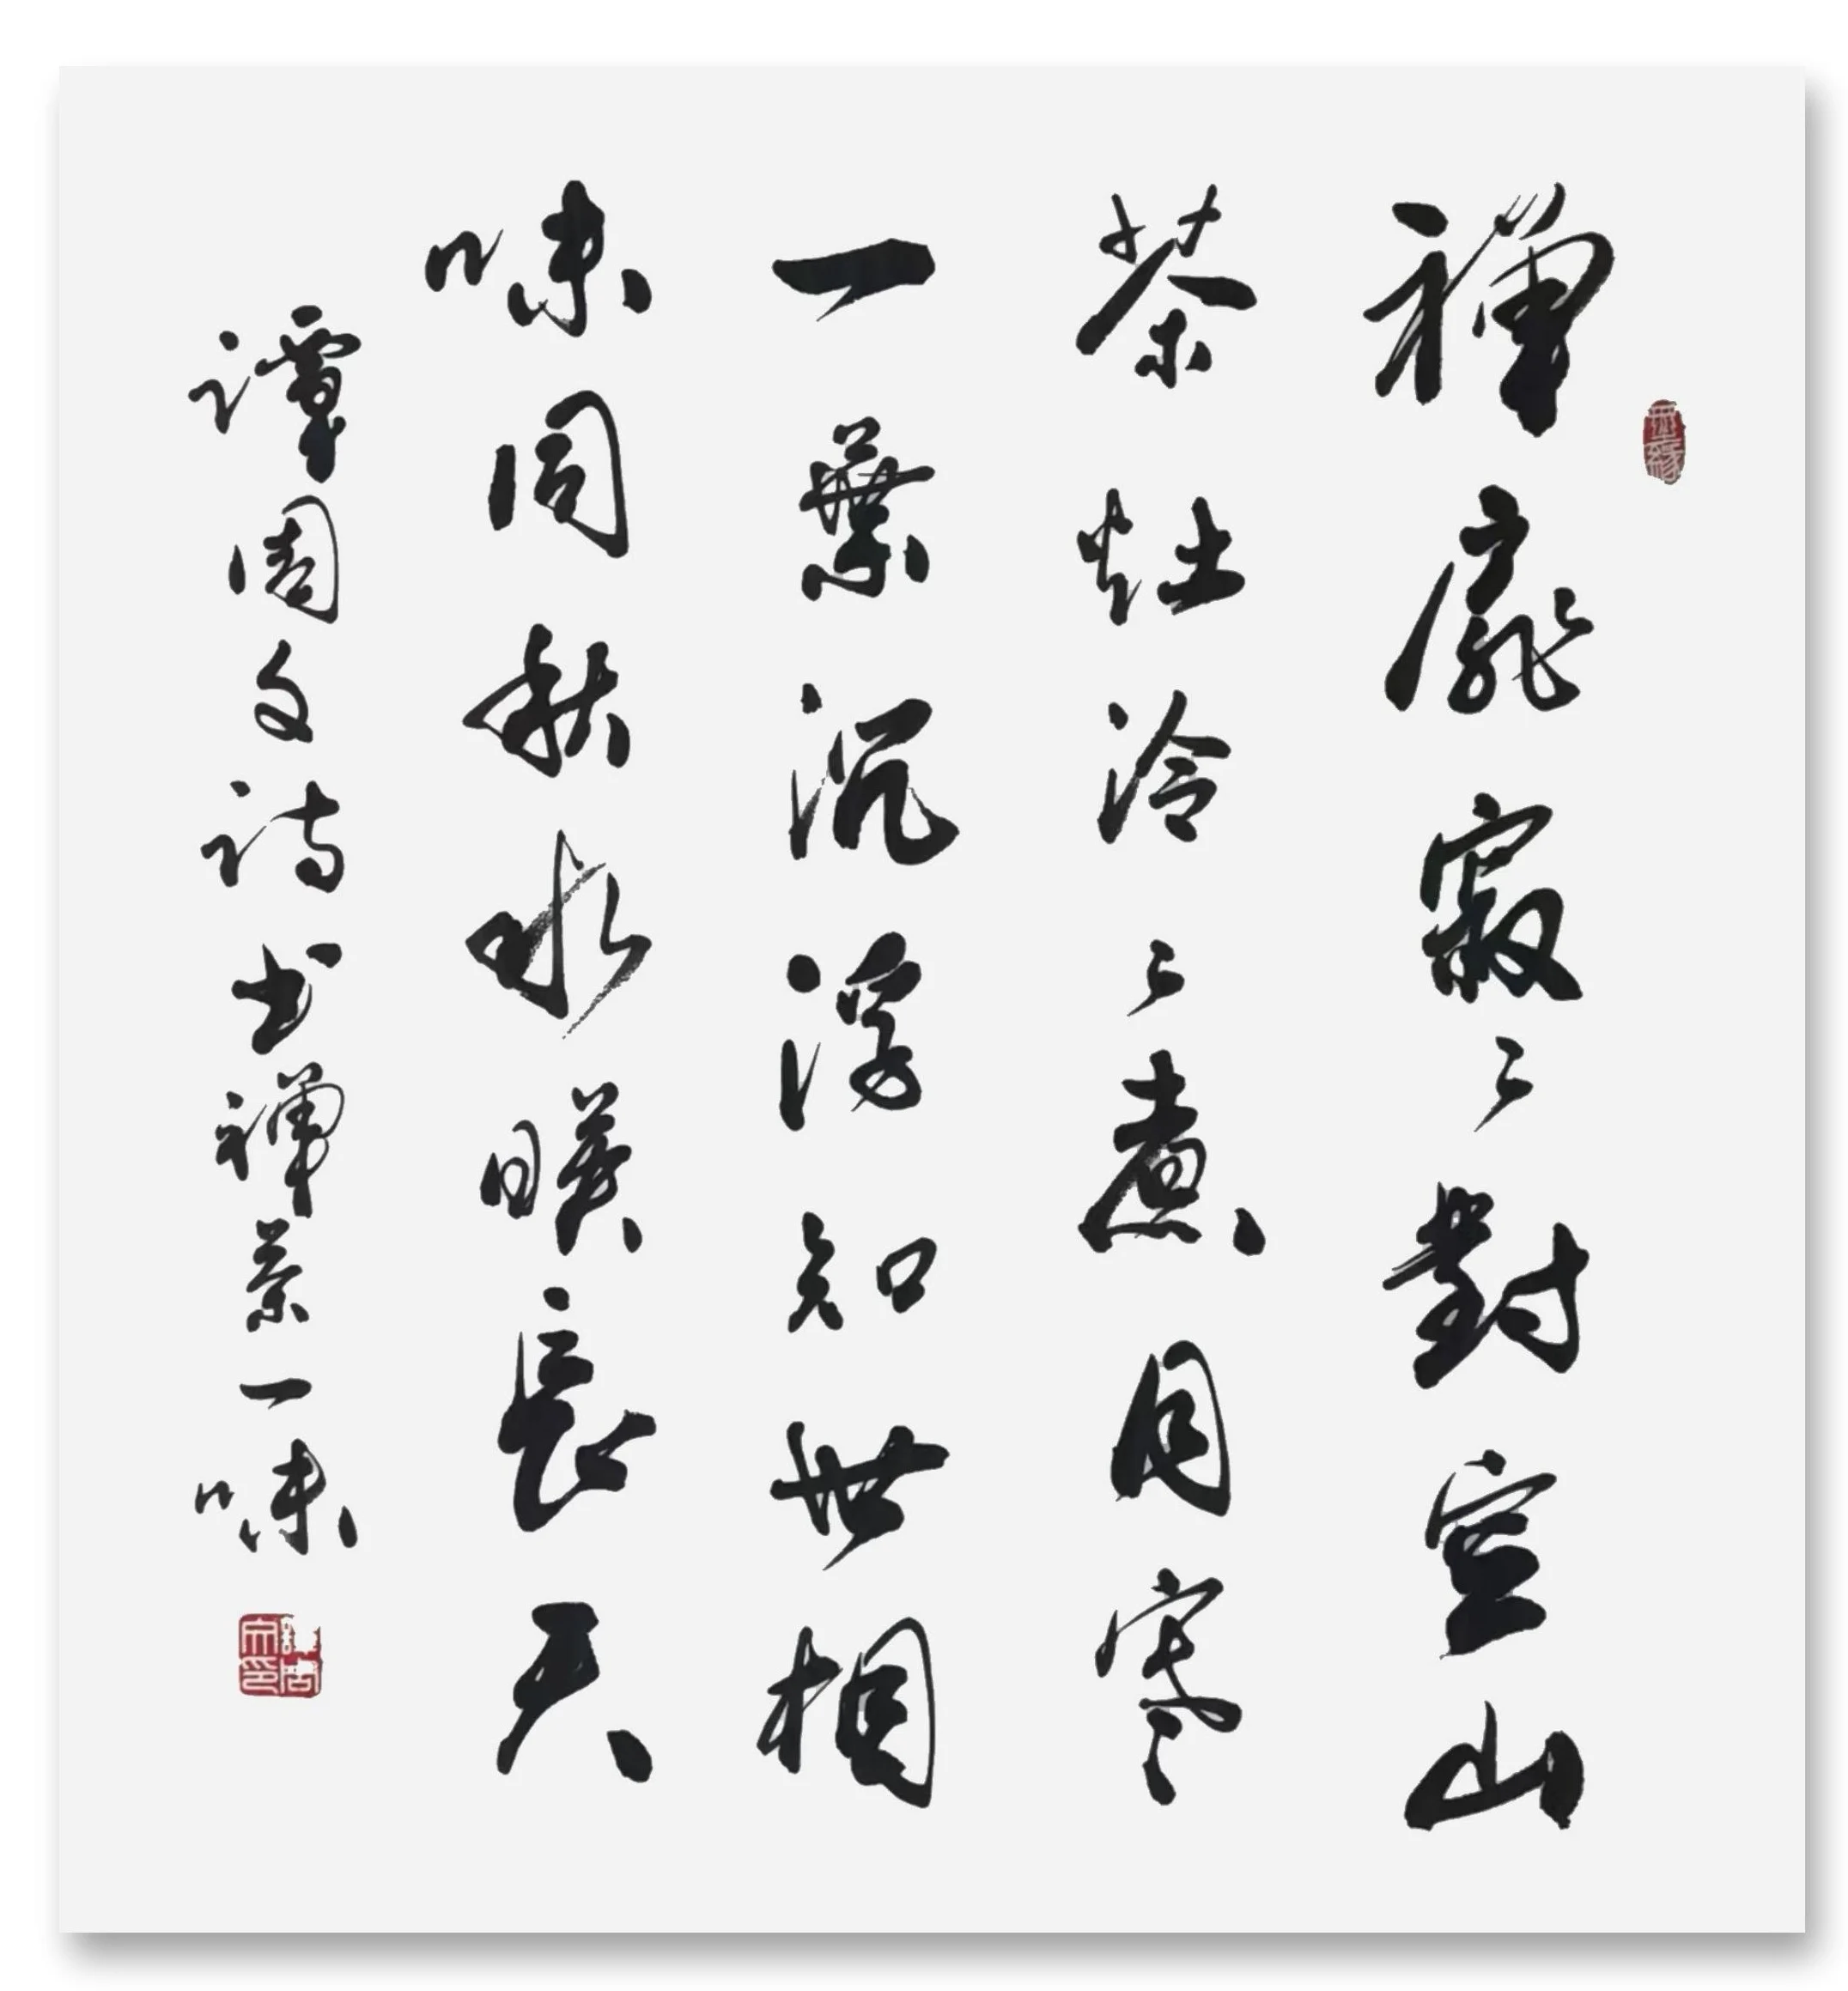 禪扉寂〻對空山
茶灶冷〻煮月寒
一葉沉浮知世相
味同秋水暎長天
譚周文詩书禪茶一味
譚周文印